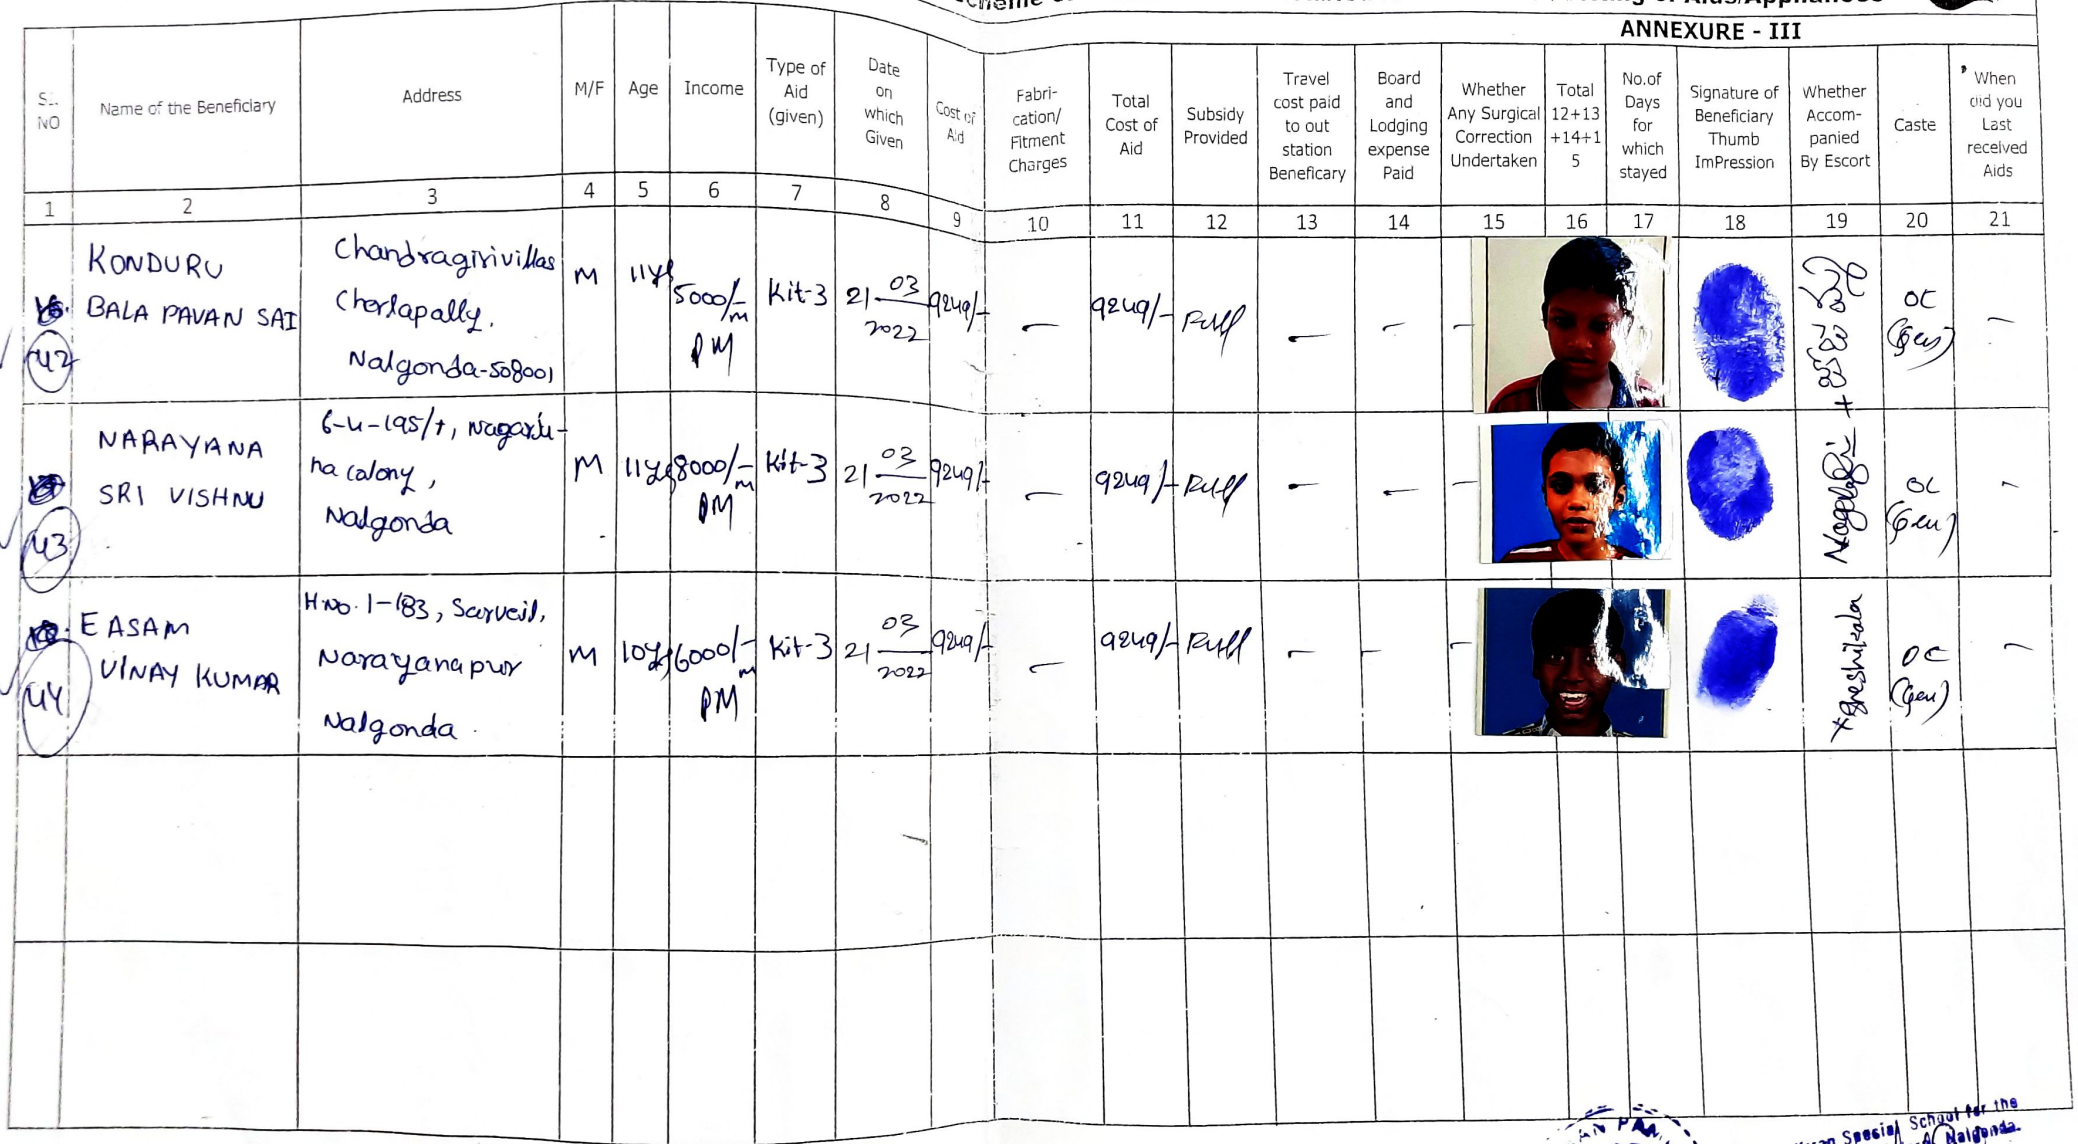 of Aids/Appliances
ANNEXURE - III
SL. NO
Name of the Beneficiary
Address
M/F
Age
Income
Type of
Aid
(given)
Date
on
which
Given
Cost of
Aid
Fabri-
cation/
Fitment
Charges
Total
Cost of
Aid
Subsidy
Provided
Travel
cost paid
to out
station
Beneficary
Board
and
Lodging
expense
Paid
Whether
Any Surgical
Correction
Undertaken
Total
12+13
+14+1
5
No.of
Days
for
which
stayed
Signature of
Beneficiary
Thumb
ImPression
Whether
Accom-
panied
By Escort
Caste
When
did you
Last
received
Aids
1 2 3 4 5 6 7 8 9 10 11 12 13 14 15 16 17 18 19 20 21
42
KONDURU
BALA PAVAN SAI
Chandragirivillas
Cherlapally,
Nalgonda-508001
M
11ys
5000/-
PM
Kit-3
21 03
2022
9249/-
—
9249/-
Full
—
—
—
OC
(Gen)
—
43
NARAYANA
SRI VISHNU
6-4-195/1, Nagarju-
na colony,
Nalgonda
M
11ys
8000/-
PM
Kit-3
21 03
2022
9249/-
—
9249/-
Full
—
—
—
OC
(Gen)
—
44
EASAM
VINAY KUMAR
H.no. 1-183, Sarveil,
Narayanapur
Nalgonda.
M
10ys
6000/-
PM
Kit-3
21 03
2022
9249/-
—
9249/-
Full
—
—
—
OC
(Gen)
—
Special School for the
Nalgonda.